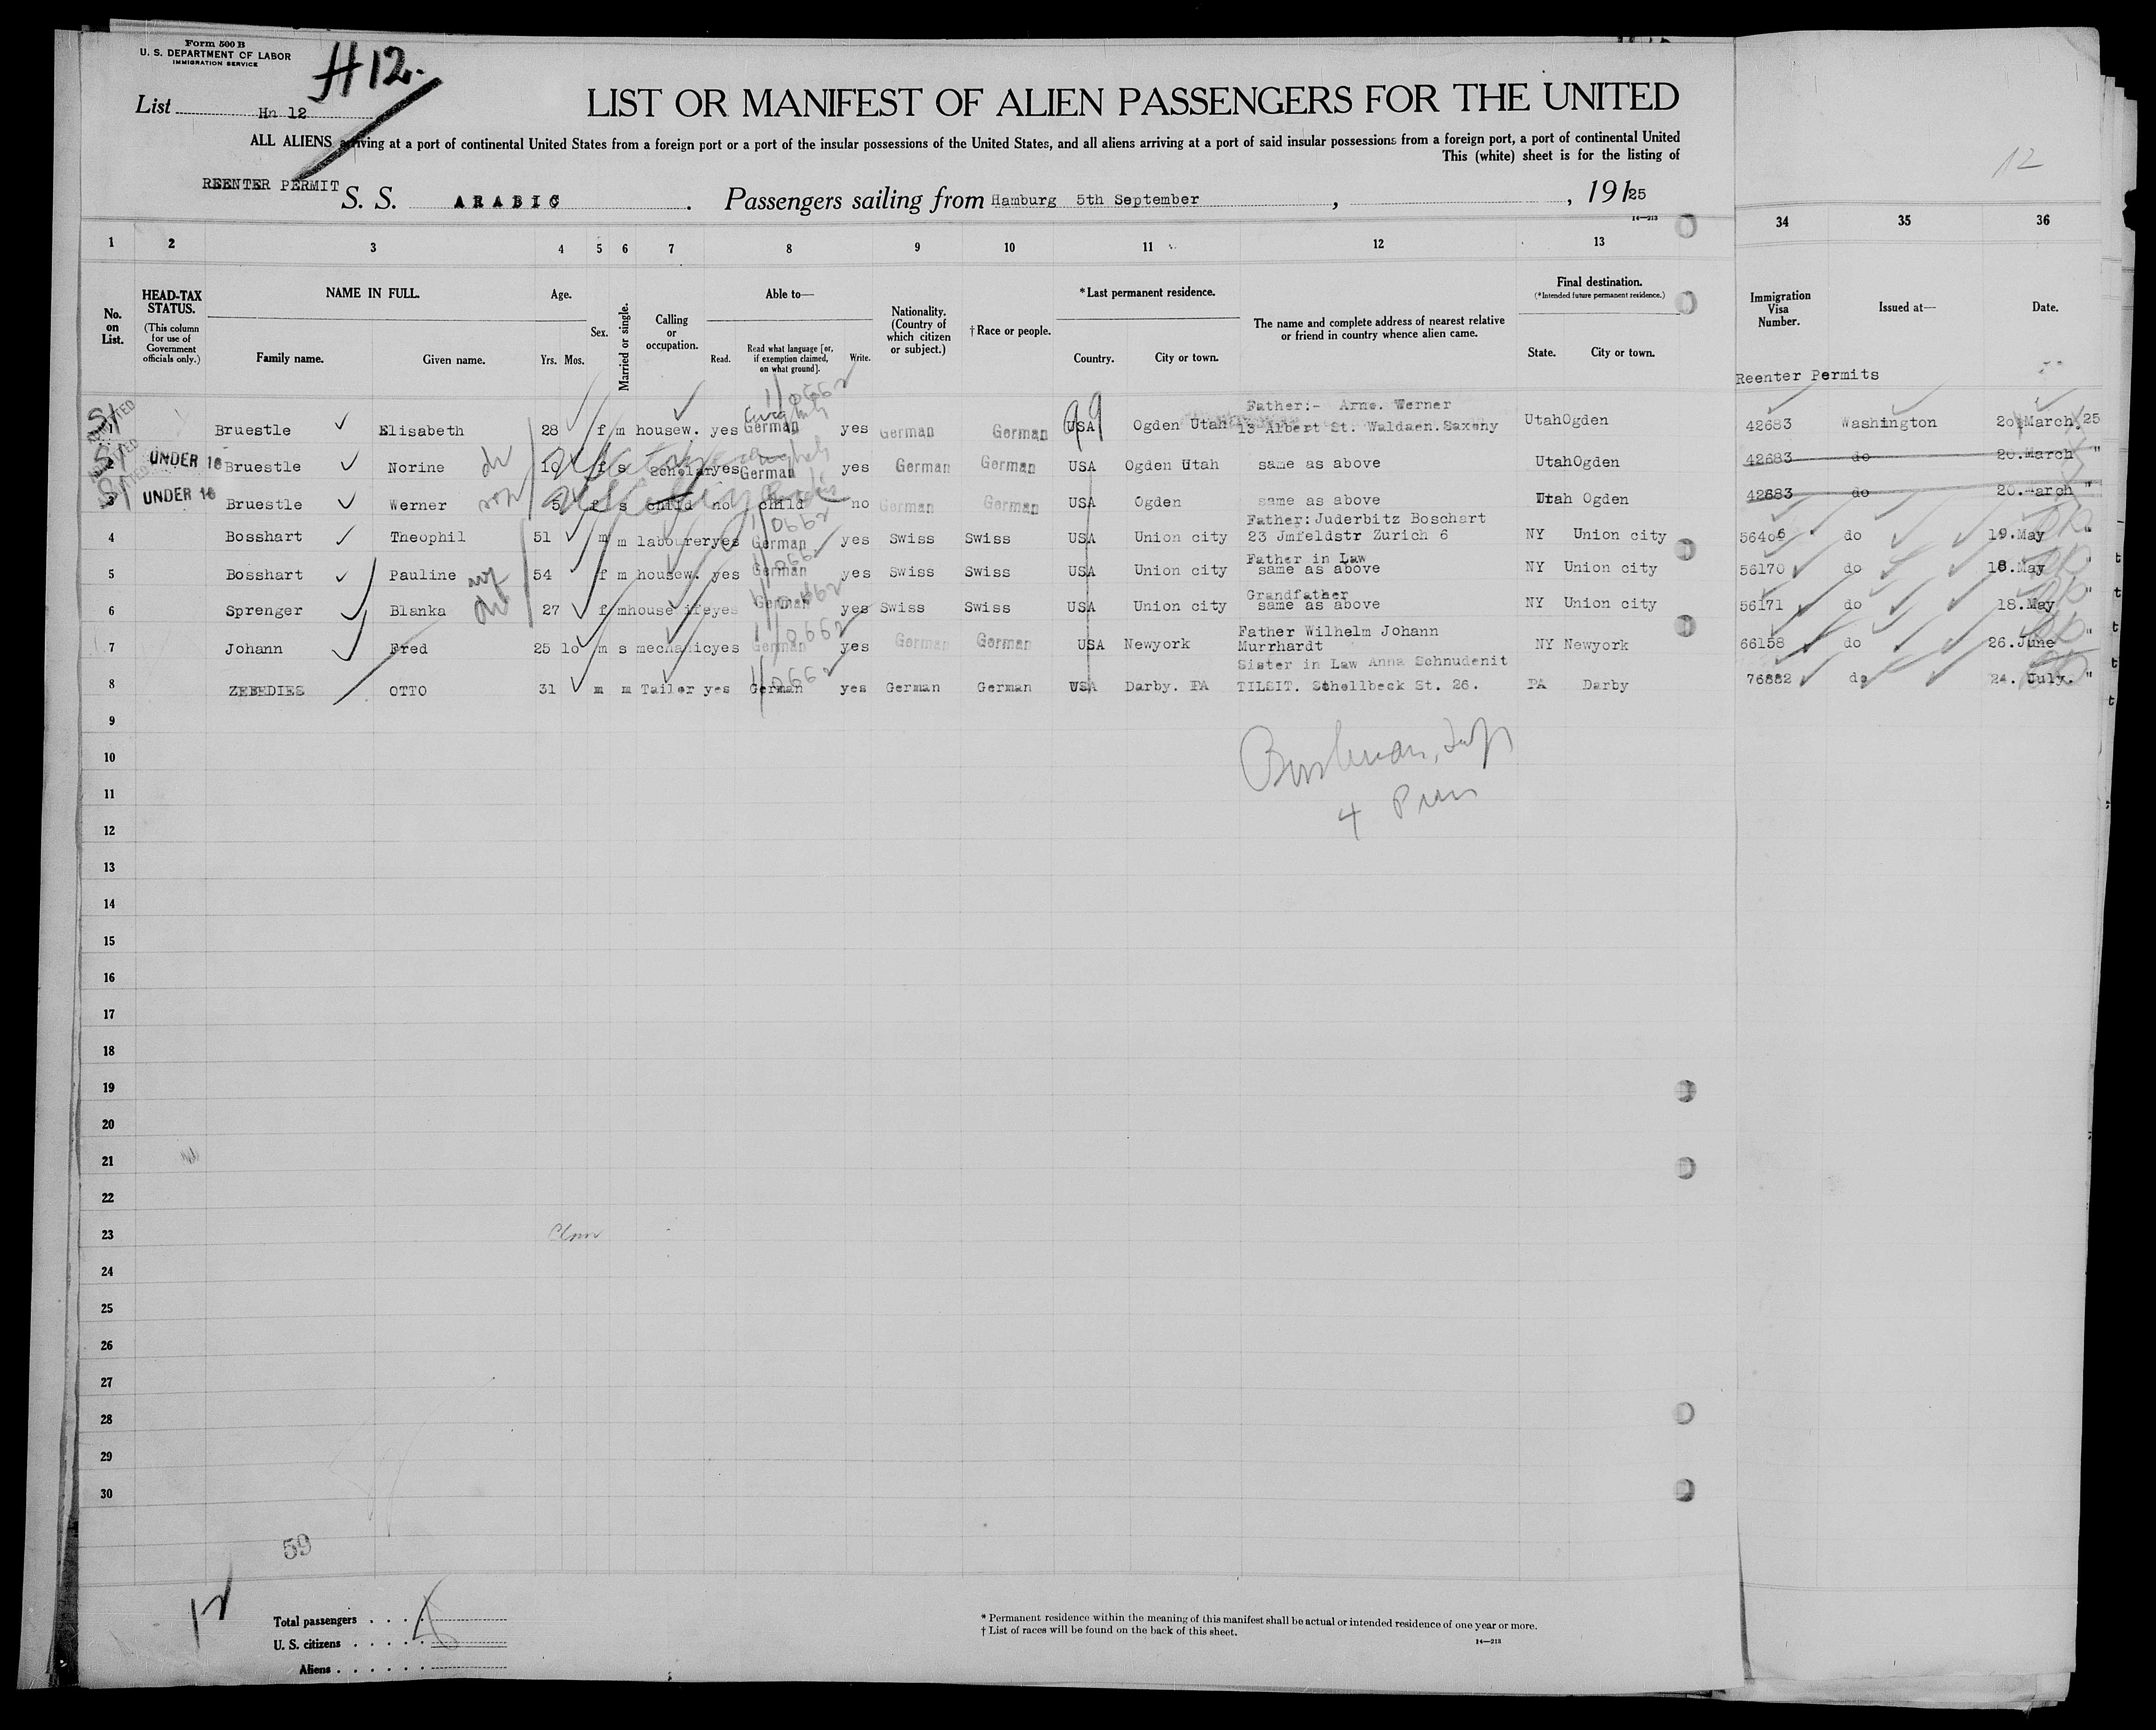 Form 500 B
U. S. DEPARTMENT OF LABOR
IMMIGRATION SERVICE
H12.
List Hn 12
LIST OR MANIFEST OF ALIEN PASSENGERS FOR THE UNITED
ALL ALIENS arriving at a port of continental United States from a foreign port or a port of the insular possessions of the United States, and all aliens arriving at a port of said insular possessions from a foreign port, a port of continental United
This (white) sheet is for the listing of
12
REENTER PERMIT S. S. ARABIC. Passengers sailing from Hamburg 5th September, , 19125
14—213
1 2 3 4 5 6 7 8 9 10 11 12 13 34 35 36
No. on List.
HEAD-TAX STATUS.
(This column for use of Government officials only.)
NAME IN FULL.
Family name. Given name.
Age.
Yrs. Mos.
Sex.
Married or single.
Calling or occupation.
Able to—
Read. Read what language [or, if exemption claimed, on what ground]. Write.
Nationality. (Country of which citizen or subject.)
†Race or people.
*Last permanent residence.
Country. City or town.
The name and complete address of nearest relative or friend in country whence alien came.
Final destination.
(*Intended future permanent residence.)
State. City or town.
Immigration Visa Number.
Issued at—
Date.
Reenter Permits
Father:- Arno. Werner
1 Bruestle Elisabeth 28 f m housew. yes German yes German German USA Ogden Utah 13 Albert St. Waldaen.Saxony Utah Ogden 42683 Washington 20 March. 25
2 UNDER 16 Bruestle Norine 10 f s scholar yes German yes German German USA Ogden Utah same as above Utah Ogden 42683 do 20.March "
3 UNDER 16 Bruestle Werner 5 f s child no child no German German USA Ogden same as above Utah Ogden 42683 do 20.March "
Father: Juderbitz Boschart
4 Bosshart Theophil 51 m m labourer yes German yes Swiss Swiss USA Union city 23 Jmfeldstr Zurich 6 NY Union city 56406 do 19.May "
Father in Law
5 Bosshart Pauline 54 f m housew. yes German yes Swiss Swiss USA Union city same as above NY Union city 56170 do 18.May "
Grandfather
6 Sprenger Blanka 27 f m housewife yes German yes Swiss Swiss USA Union city same as above NY Union city 56171 do 18.May "
Father Wilhelm Johann
7 Johann Fred 25 10 m s mechanic yes German yes German German USA Newyork Murrhardt NY Newyork 66158 do 26.June "
Sister in Law Anna Schnudenit
8 ZEBEDIES OTTO 31 m m Tailor yes German yes German German USA Darby. PA TILSIT. Sthellbeck St. 26. PA Darby 76882 do 24. July. "
9
10
11
4
12
13
14
15
16
17
18
19
20
21
22
23
24
25
26
27
28
29
30
59
12
Total passengers
U. S. citizens
Aliens
* Permanent residence within the meaning of this manifest shall be actual or intended residence of one year or more.
† List of races will be found on the back of this sheet.
14—213